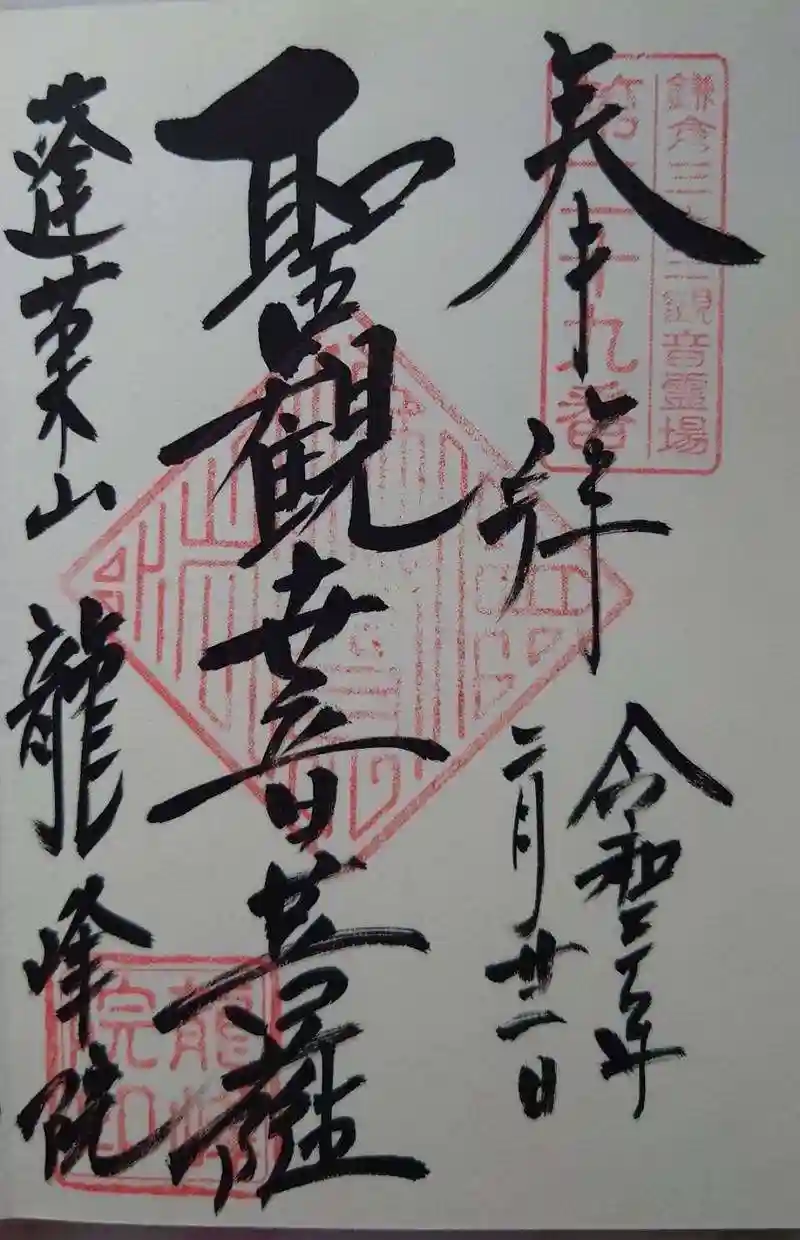 鎌倉三十三観音霊場
第二十九番
奉拝
令和二年
二月廿二日
聖観世音菩薩
蓬莱山 龍峰院
龍峰
院印